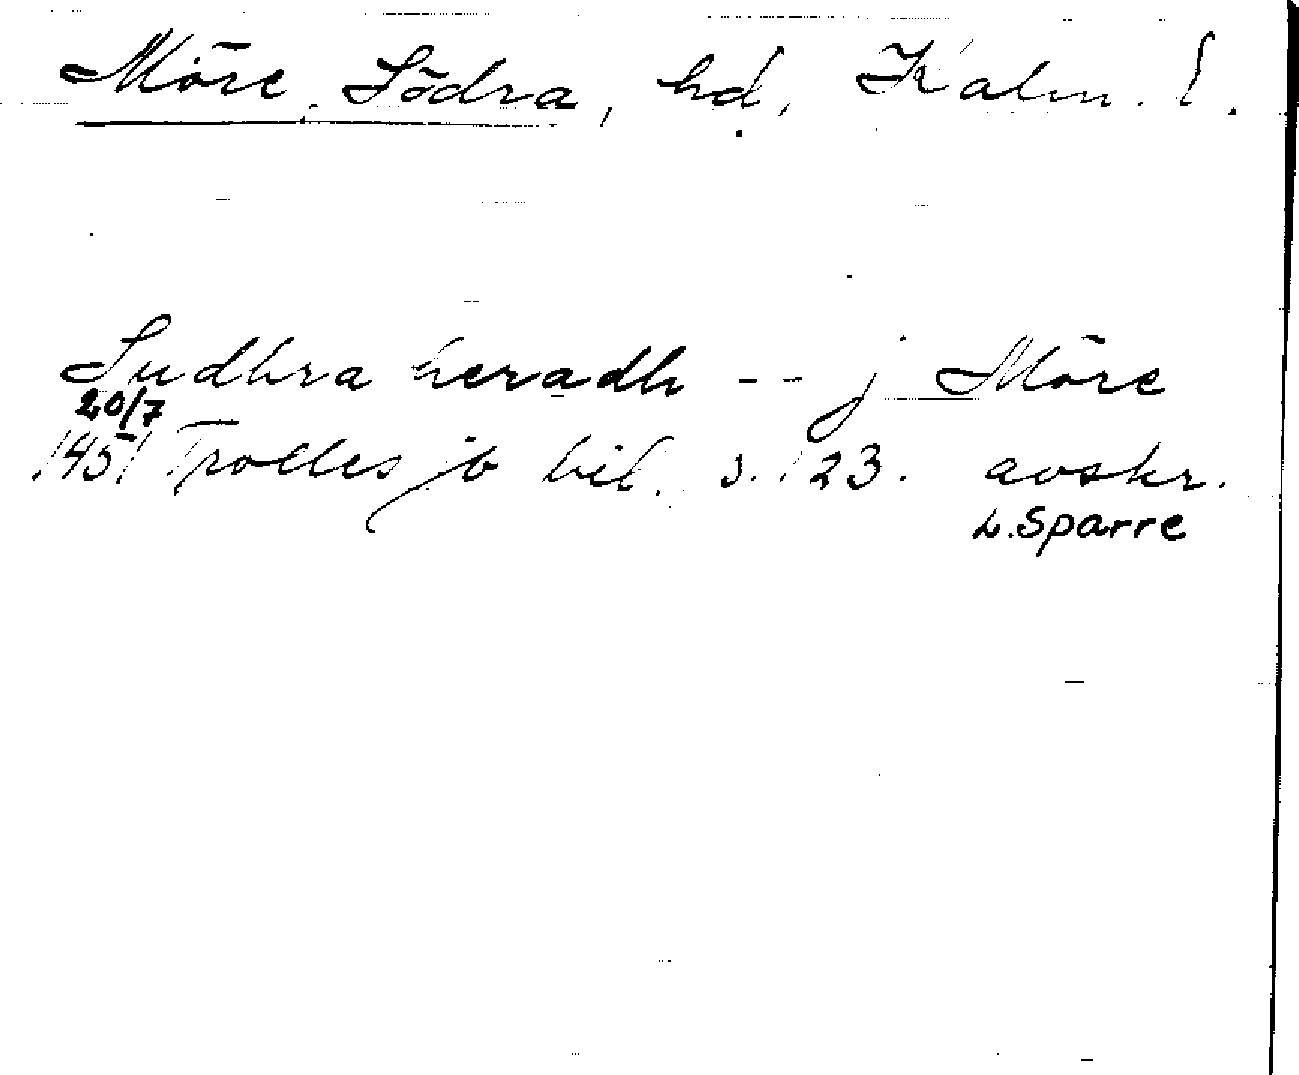 Möre, Södra, hd, Kalm. l.
Sudhra heradh -- j Möre
20/7
1451 Trolles jb bil. s. 123. avskr.
L. Sparre